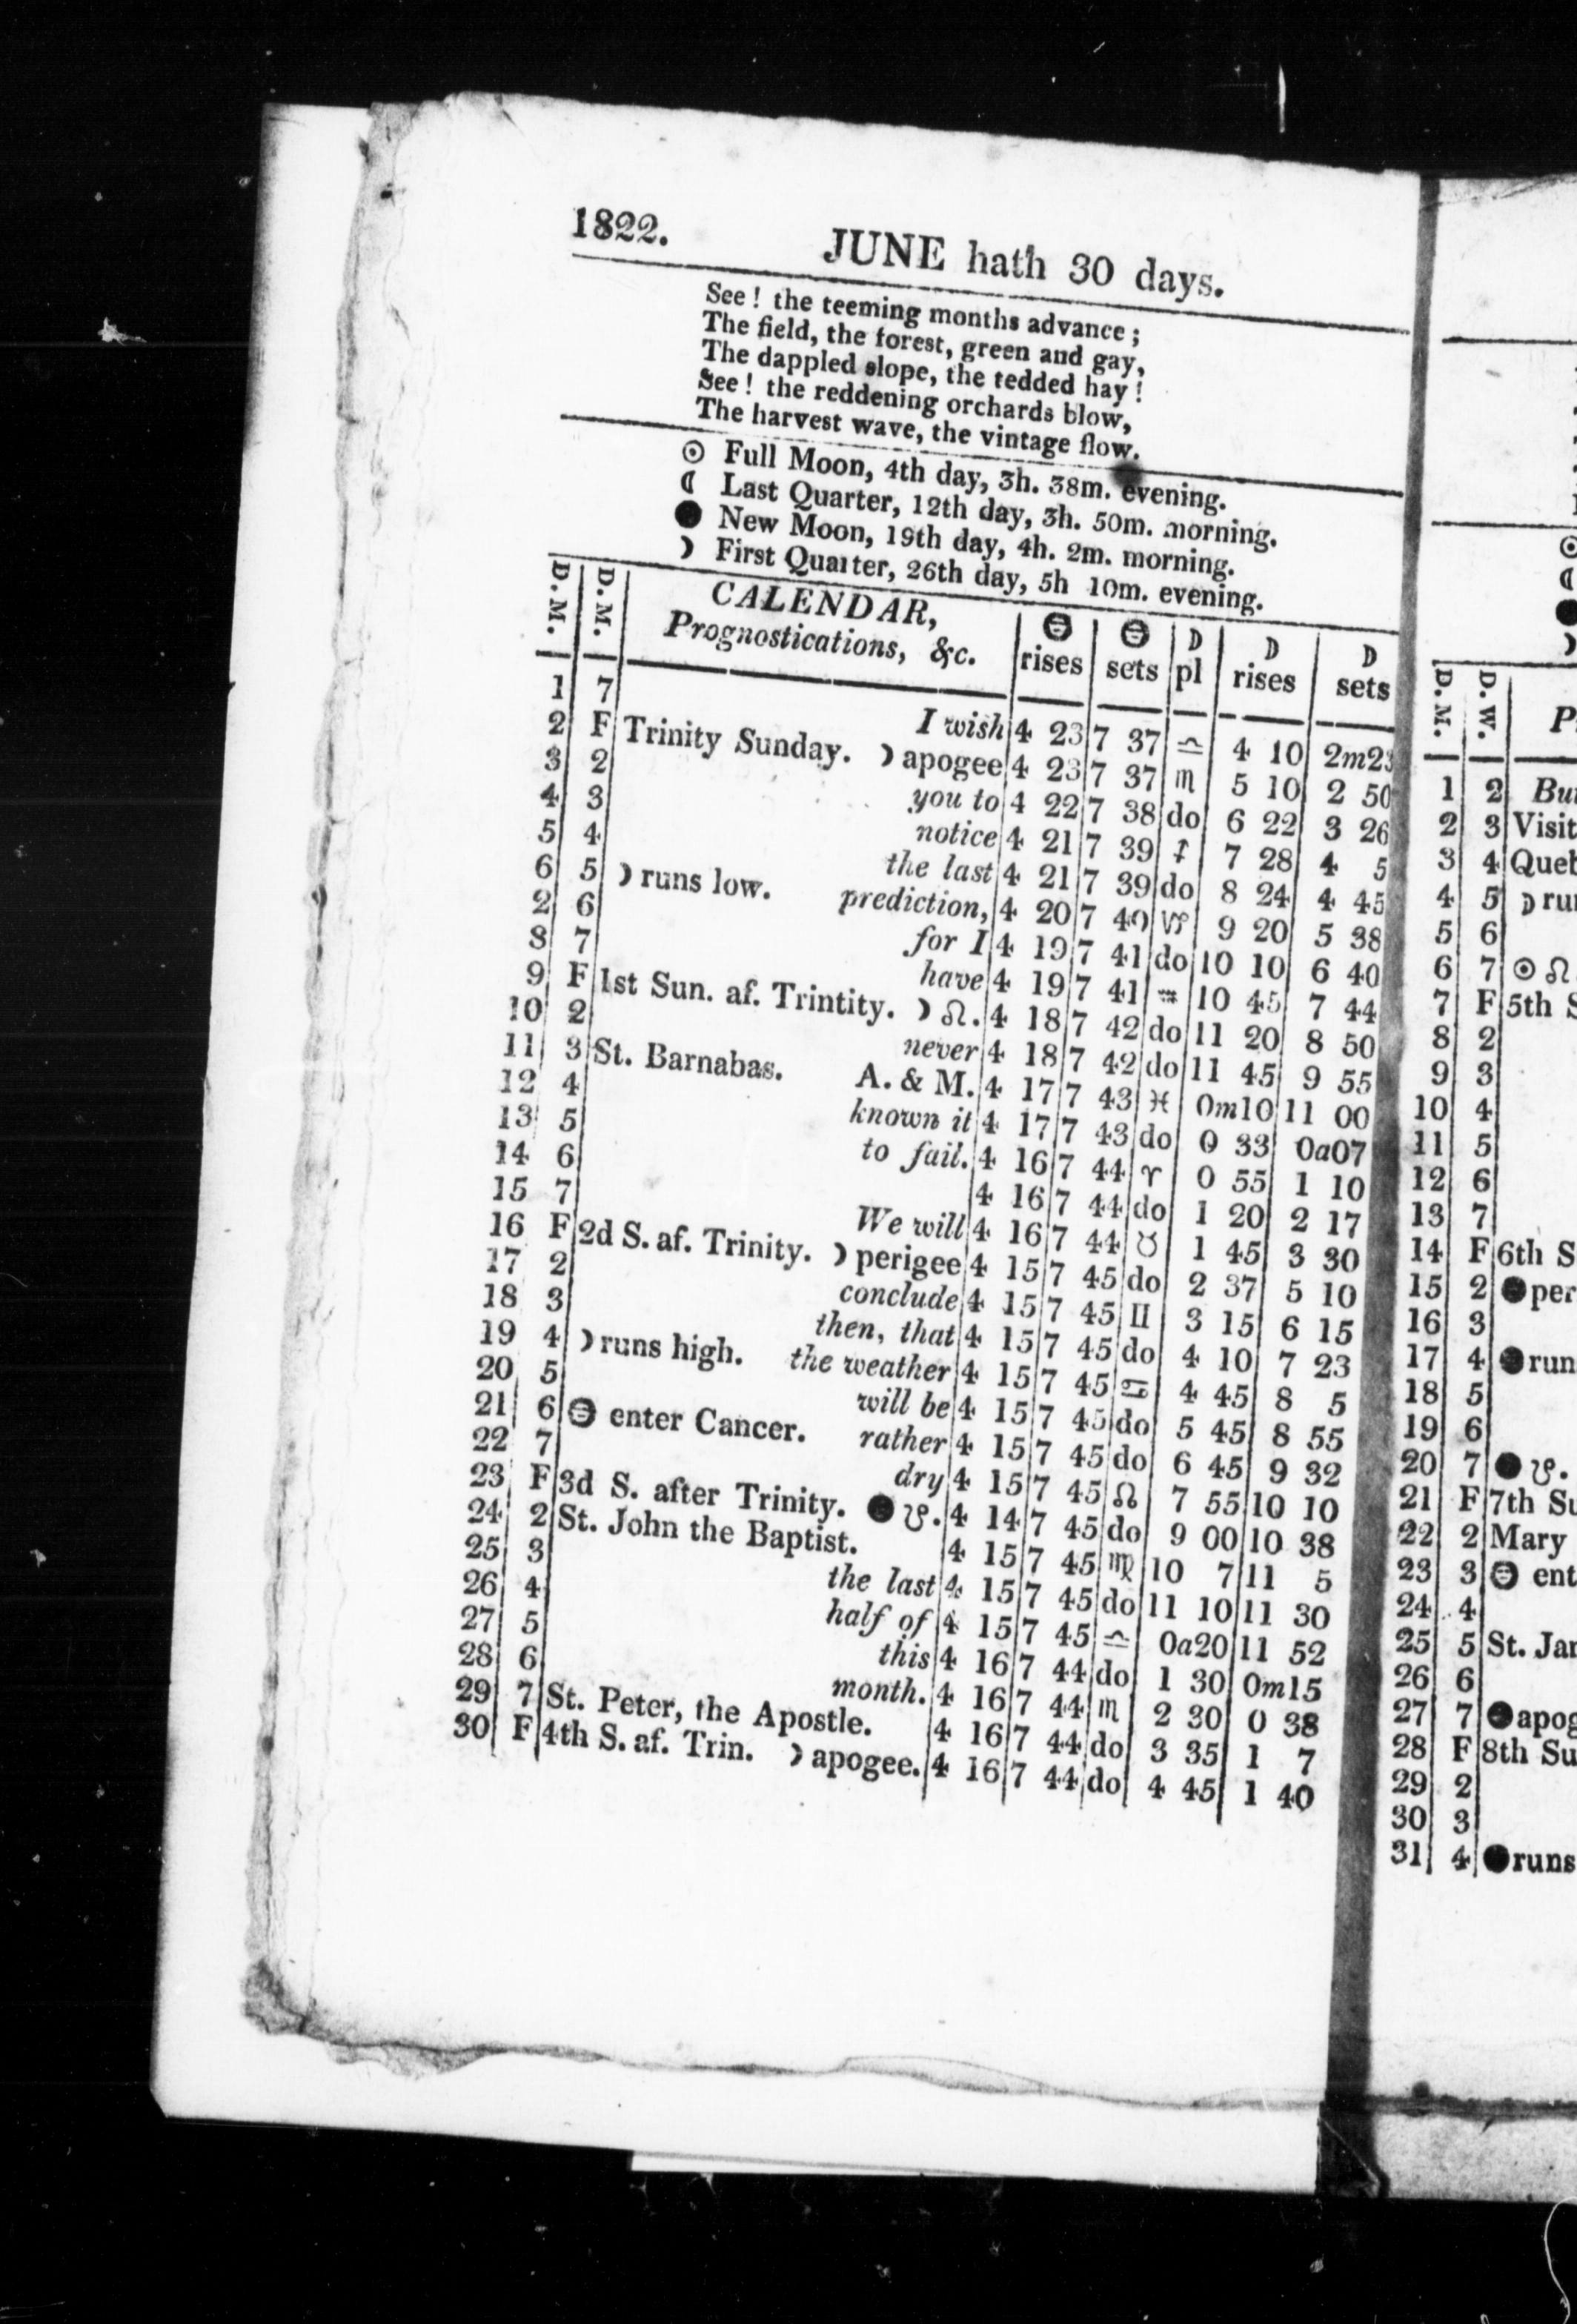 1822.
JUNE hath 30 days.
See! the teeming months advance;
The field, the forest, green and gay,
The dappled slope, the tedded hay!
See! the reddening orchards blow,
The harvest wave, the vintage flow.
☉ Full Moon, 4th day, 3h. 38m. evening.
☾ Last Quarter, 12th day, 3h. 50m. morning.
● New Moon, 19th day, 4h. 2m. morning.
☽ First Quarter, 26th day, 5h 10m. evening.
D. M. D. M. CALENDAR, ⊖ ⊖ ☽ ☽ ☽
Prognostications, &c. rises sets pl rises sets
1 7 I wish 4 23 7 37 ♎ 4 10 2m23
2 F Trinity Sunday. ☽ apogee 4 23 7 37 ♏ 5 10 2 50
3 2 you to 4 22 7 38 do 6 22 3 26
4 3 notice 4 21 7 39 ♐ 7 28 4 5
5 4 the last 4 21 7 39 do 8 24 4 45
6 5 ☽ runs low. prediction, 4 20 7 40 ♑ 9 20 5 38
2 6 for I 4 19 7 41 do 10 10 6 40
8 7 have 4 19 7 41 ♒ 10 45 7 44
9 F 1st Sun. af. Trintity. ☽ ☊. 4 18 7 42 do 11 20 8 50
10 2 never 4 18 7 42 do 11 45 9 55
11 3 St. Barnabas. A. & M. 4 17 7 43 ♓ 0m10 11 00
12 4 known it 4 17 7 43 do 0 33 0a07
13 5 to fail. 4 16 7 44 ♈ 0 55 1 10
14 6 4 16 7 44 do 1 20 2 17
15 7 We will 4 16 7 44 ♉ 1 45 3 30
16 F 2d S. af. Trinity. ☽ perigee 4 15 7 45 do 2 37 5 10
17 2 conclude 4 15 7 45 ♊ 3 15 6 15
18 3 then, that 4 15 7 45 do 4 10 7 23
19 4 ☽ runs high. the weather 4 15 7 45 ♋ 4 45 8 5
20 5 will be 4 15 7 45 do 5 45 8 55
21 6 ⊖ enter Cancer. rather 4 15 7 45 do 6 45 9 32
22 7 dry 4 15 7 45 ♌ 7 55 10 10
23 F 3d S. after Trinity. ● ☋. 4 14 7 45 do 9 00 10 38
24 2 St. John the Baptist. 4 15 7 45 ♍ 10 7 11 5
25 3 the last 4 15 7 45 do 11 10 11 30
26 4 half of 4 15 7 45 ♎ 0a20 11 52
27 5 this 4 16 7 44 do 1 30 0m15
28 6 month. 4 16 7 44 ♏ 2 30 0 38
29 7 St. Peter, the Apostle. 4 16 7 44 do 3 35 1 7
30 F 4th S. af. Trin. ☽ apogee. 4 16 7 44 do 4 45 1 40
☉
☾
●
☽
D. M. D. W. P
1 2 But
2 3 Visit
3 4 Queb
4 5 ☽ ru
5 6
6 7 ☉ ☊
7 F 5th S
8 2
9 3
10 4
11 5
12 6
13 7
14 F 6th S
15 2 ● per
16 3
17 4 ● run
18 5
19 6
20 7 ● ☋.
21 F 7th Su
22 2 Mary
23 3 ⊖ ent
24 4
25 5 St. Jan
26 6
27 7 ● apog
28 F 8th Su
29 2
30 3
31 4 ● runs